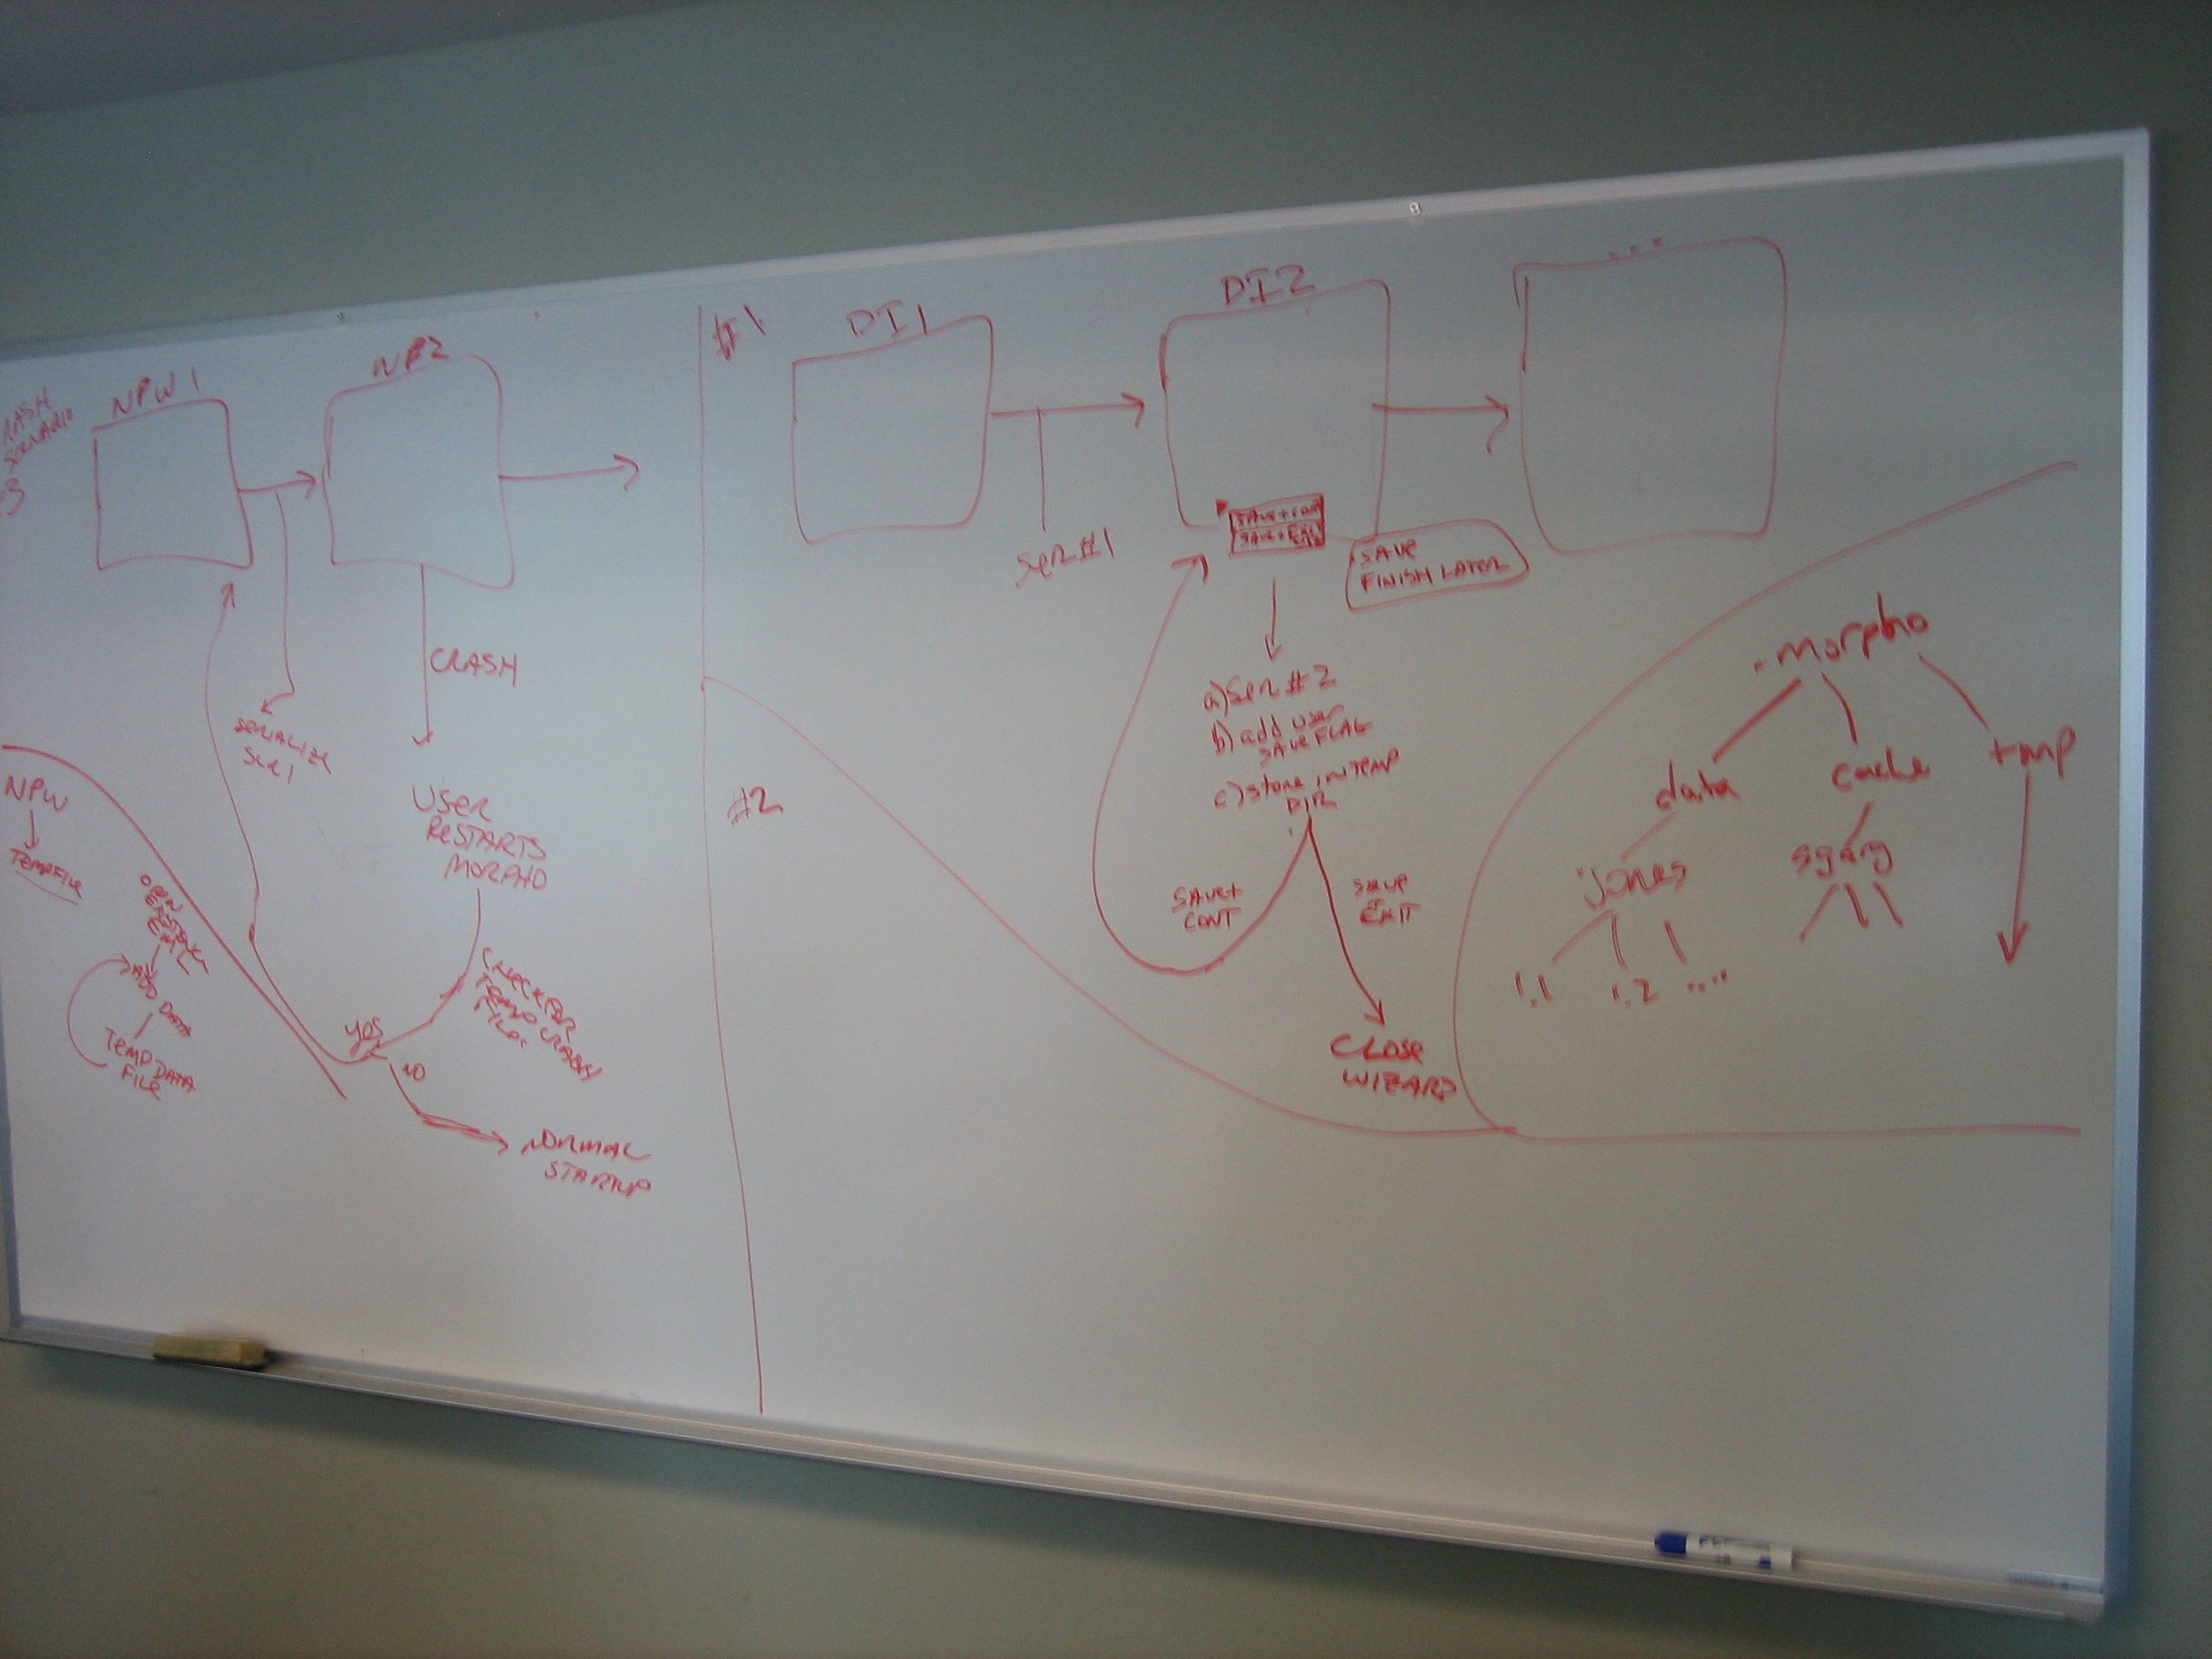 SCENARIO
NPW 1
NP2
SERIALIZE
SER 1
CRASH
USER
RESTARTS
MORPHO
CHECK FOR
TEMP CRASH
FILES
YES
NO
NORMAL
STARTUP
NPW
TEMP FILE
OPEN
EXISTING
EML
ADD DATA
TEMP DATA
FILE
#1
DI1
DI2
...
SER #1
SAVE + CONT
SAVE + EXIT
SAVE
FINISH LATER
a) SER #2
b) add USER
SAVE FLAG
c) store IN TEMP
DIR
SAVE +
CONT
SAVE
EXIT
CLOSE
WIZARD
#2
.morpho
data
cache
tmp
jones
1.1
1.2
....